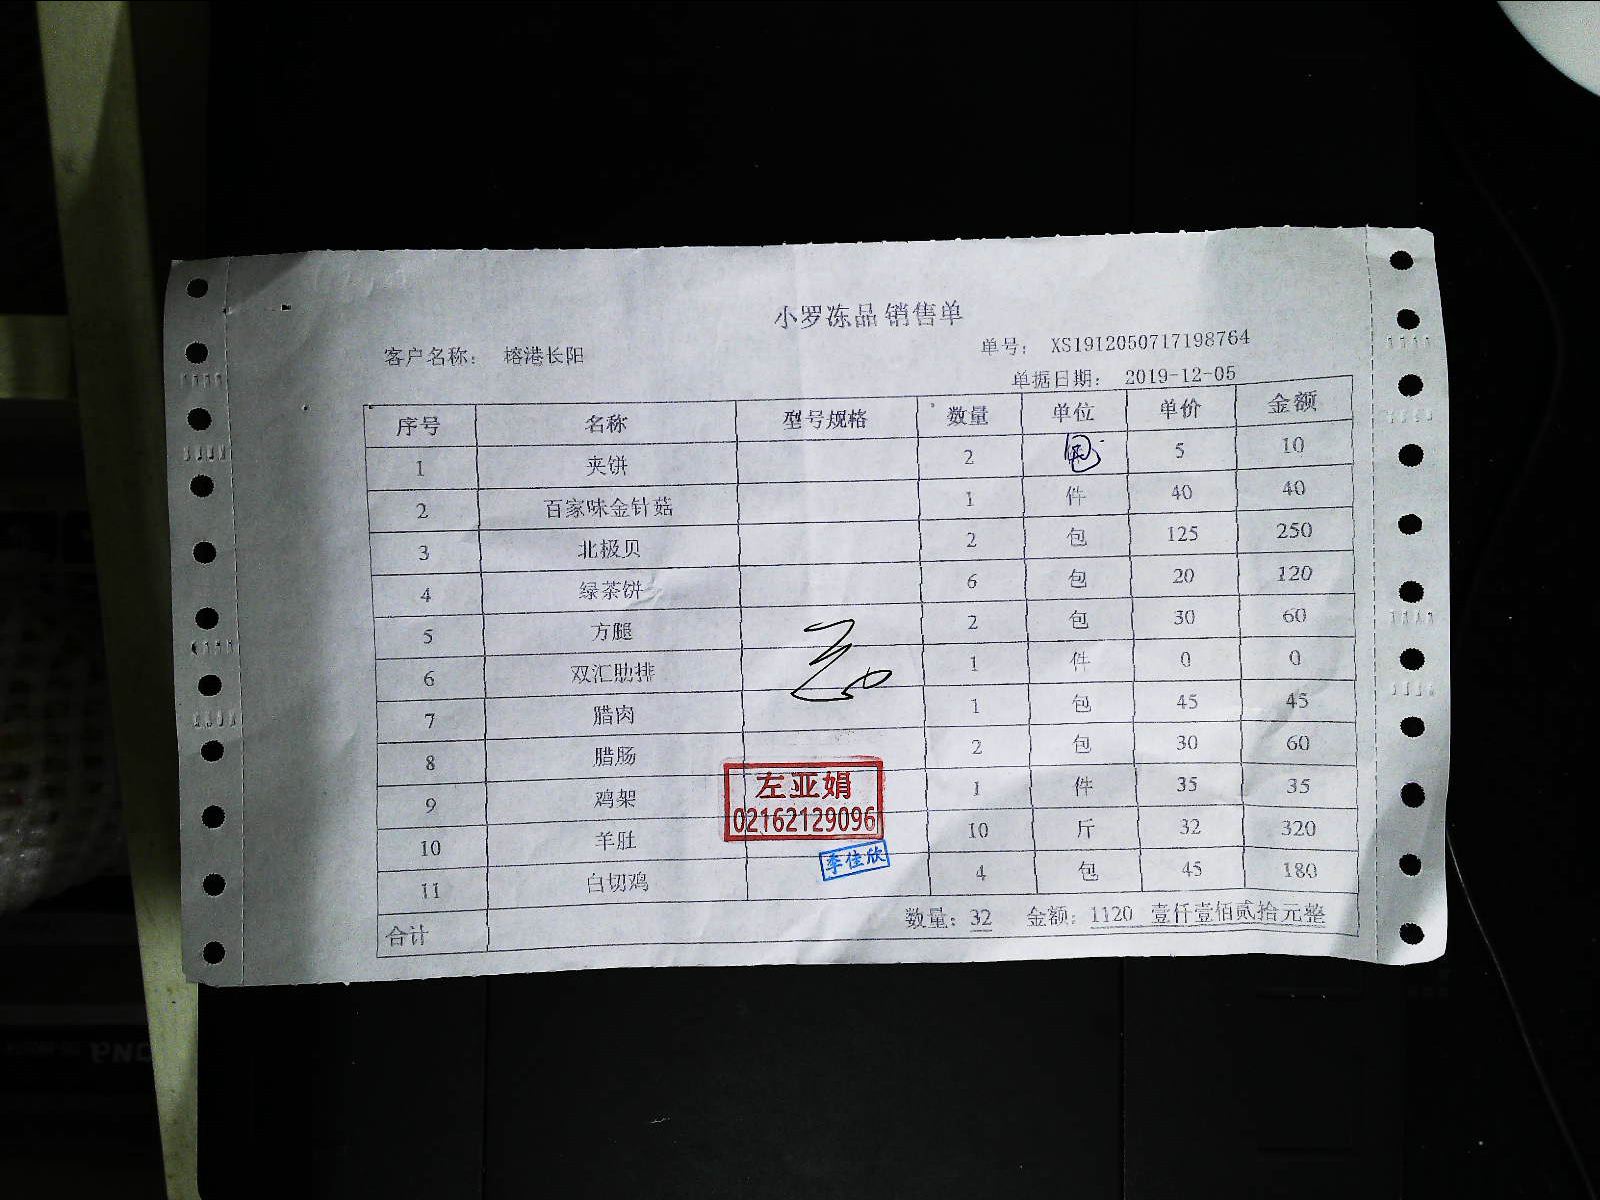 小罗冻品 销售单
客户名称： 榕港长阳
单号： XS1912050717198764
单据日期： 2019-12-05
序号 名称 型号规格 数量 单位 单价 金额
1 夹饼 2 5 10
2 百家味金针菇 1 件 40 40
3 北极贝 2 包 125 250
4 绿茶饼 6 包 20 120
5 方腿 2 包 30 60
6 双汇肋排 1 件 0 0
7 腊肉 1 包 45 45
8 腊肠 2 包 30 60
9 鸡架 1 件 35 35
10 羊肚 10 斤 32 320
11 白切鸡 4 包 45 180
合计 数量：32 金额：1120 壹仟壹佰贰拾元整
左亚娟
02162129096
李佳欣